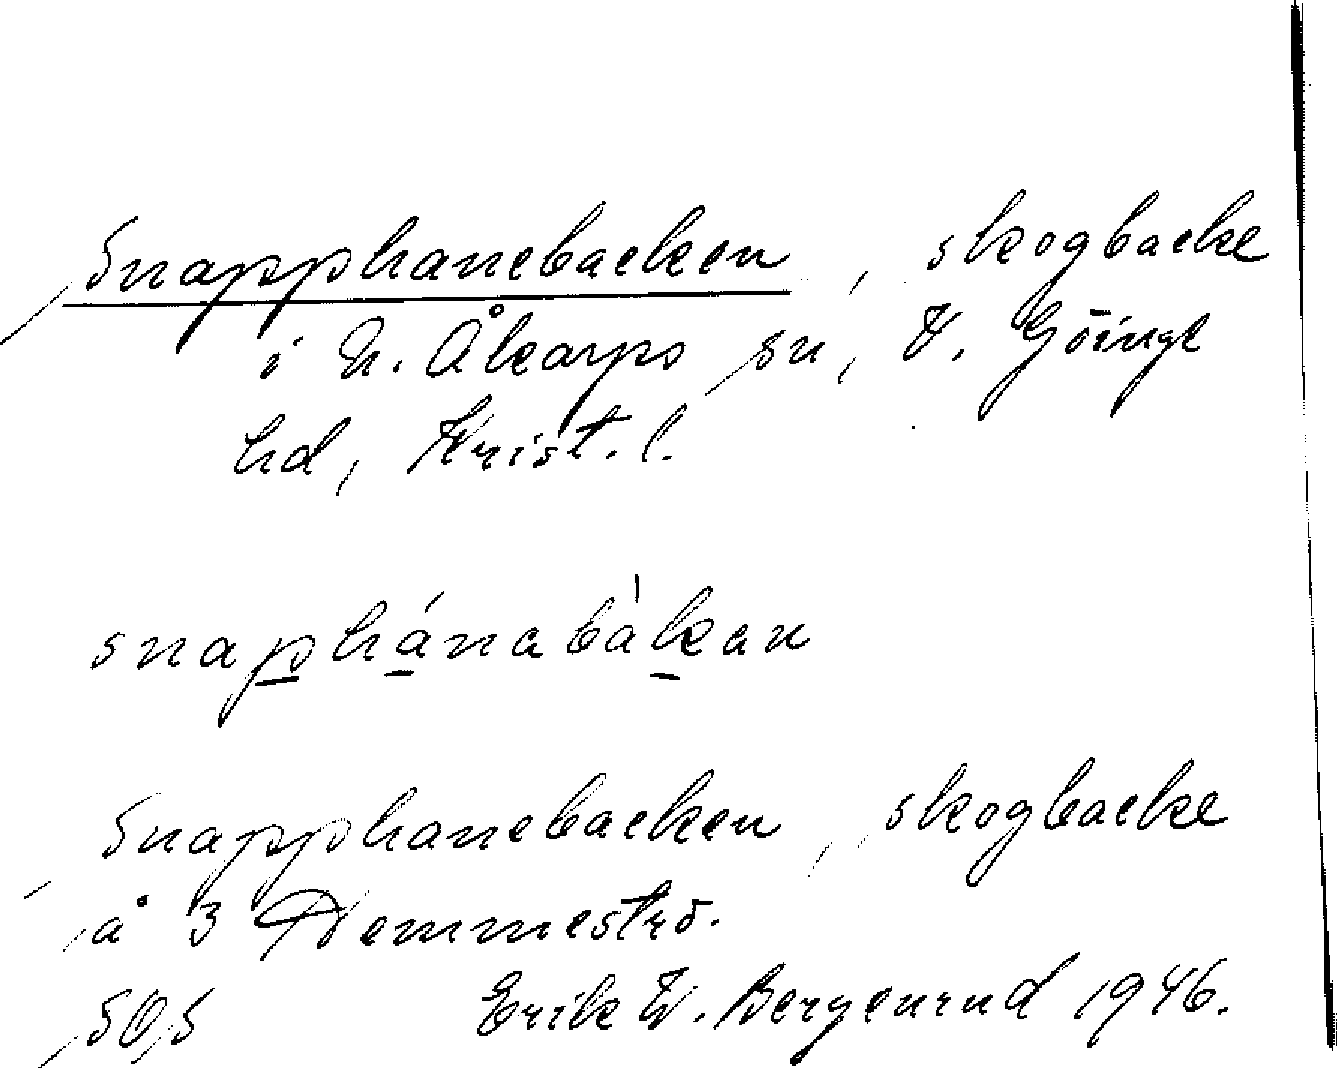 Snapphanebacken, skogbacke
i N. Åkarps sn, V. Göinge
hd, Krist. l.
snaphánabàkan
Snapphanebacken, skogbacke
å 3 Hemmeströ.
SO, S
Erik W. Bergenrud 1946.